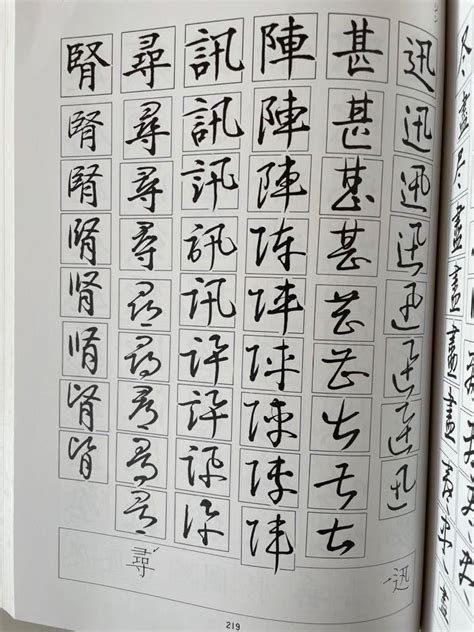 迅迅迅迅迅迅迅迅
甚甚甚甚甚甚甚甚甚
陣陣陣陣陣陣陣陣陣
訊訊訊訊訊訊訊訊訊
尋尋尋尋尋尋尋尋尋
腎腎腎腎腎腎腎腎
迅
尋
219